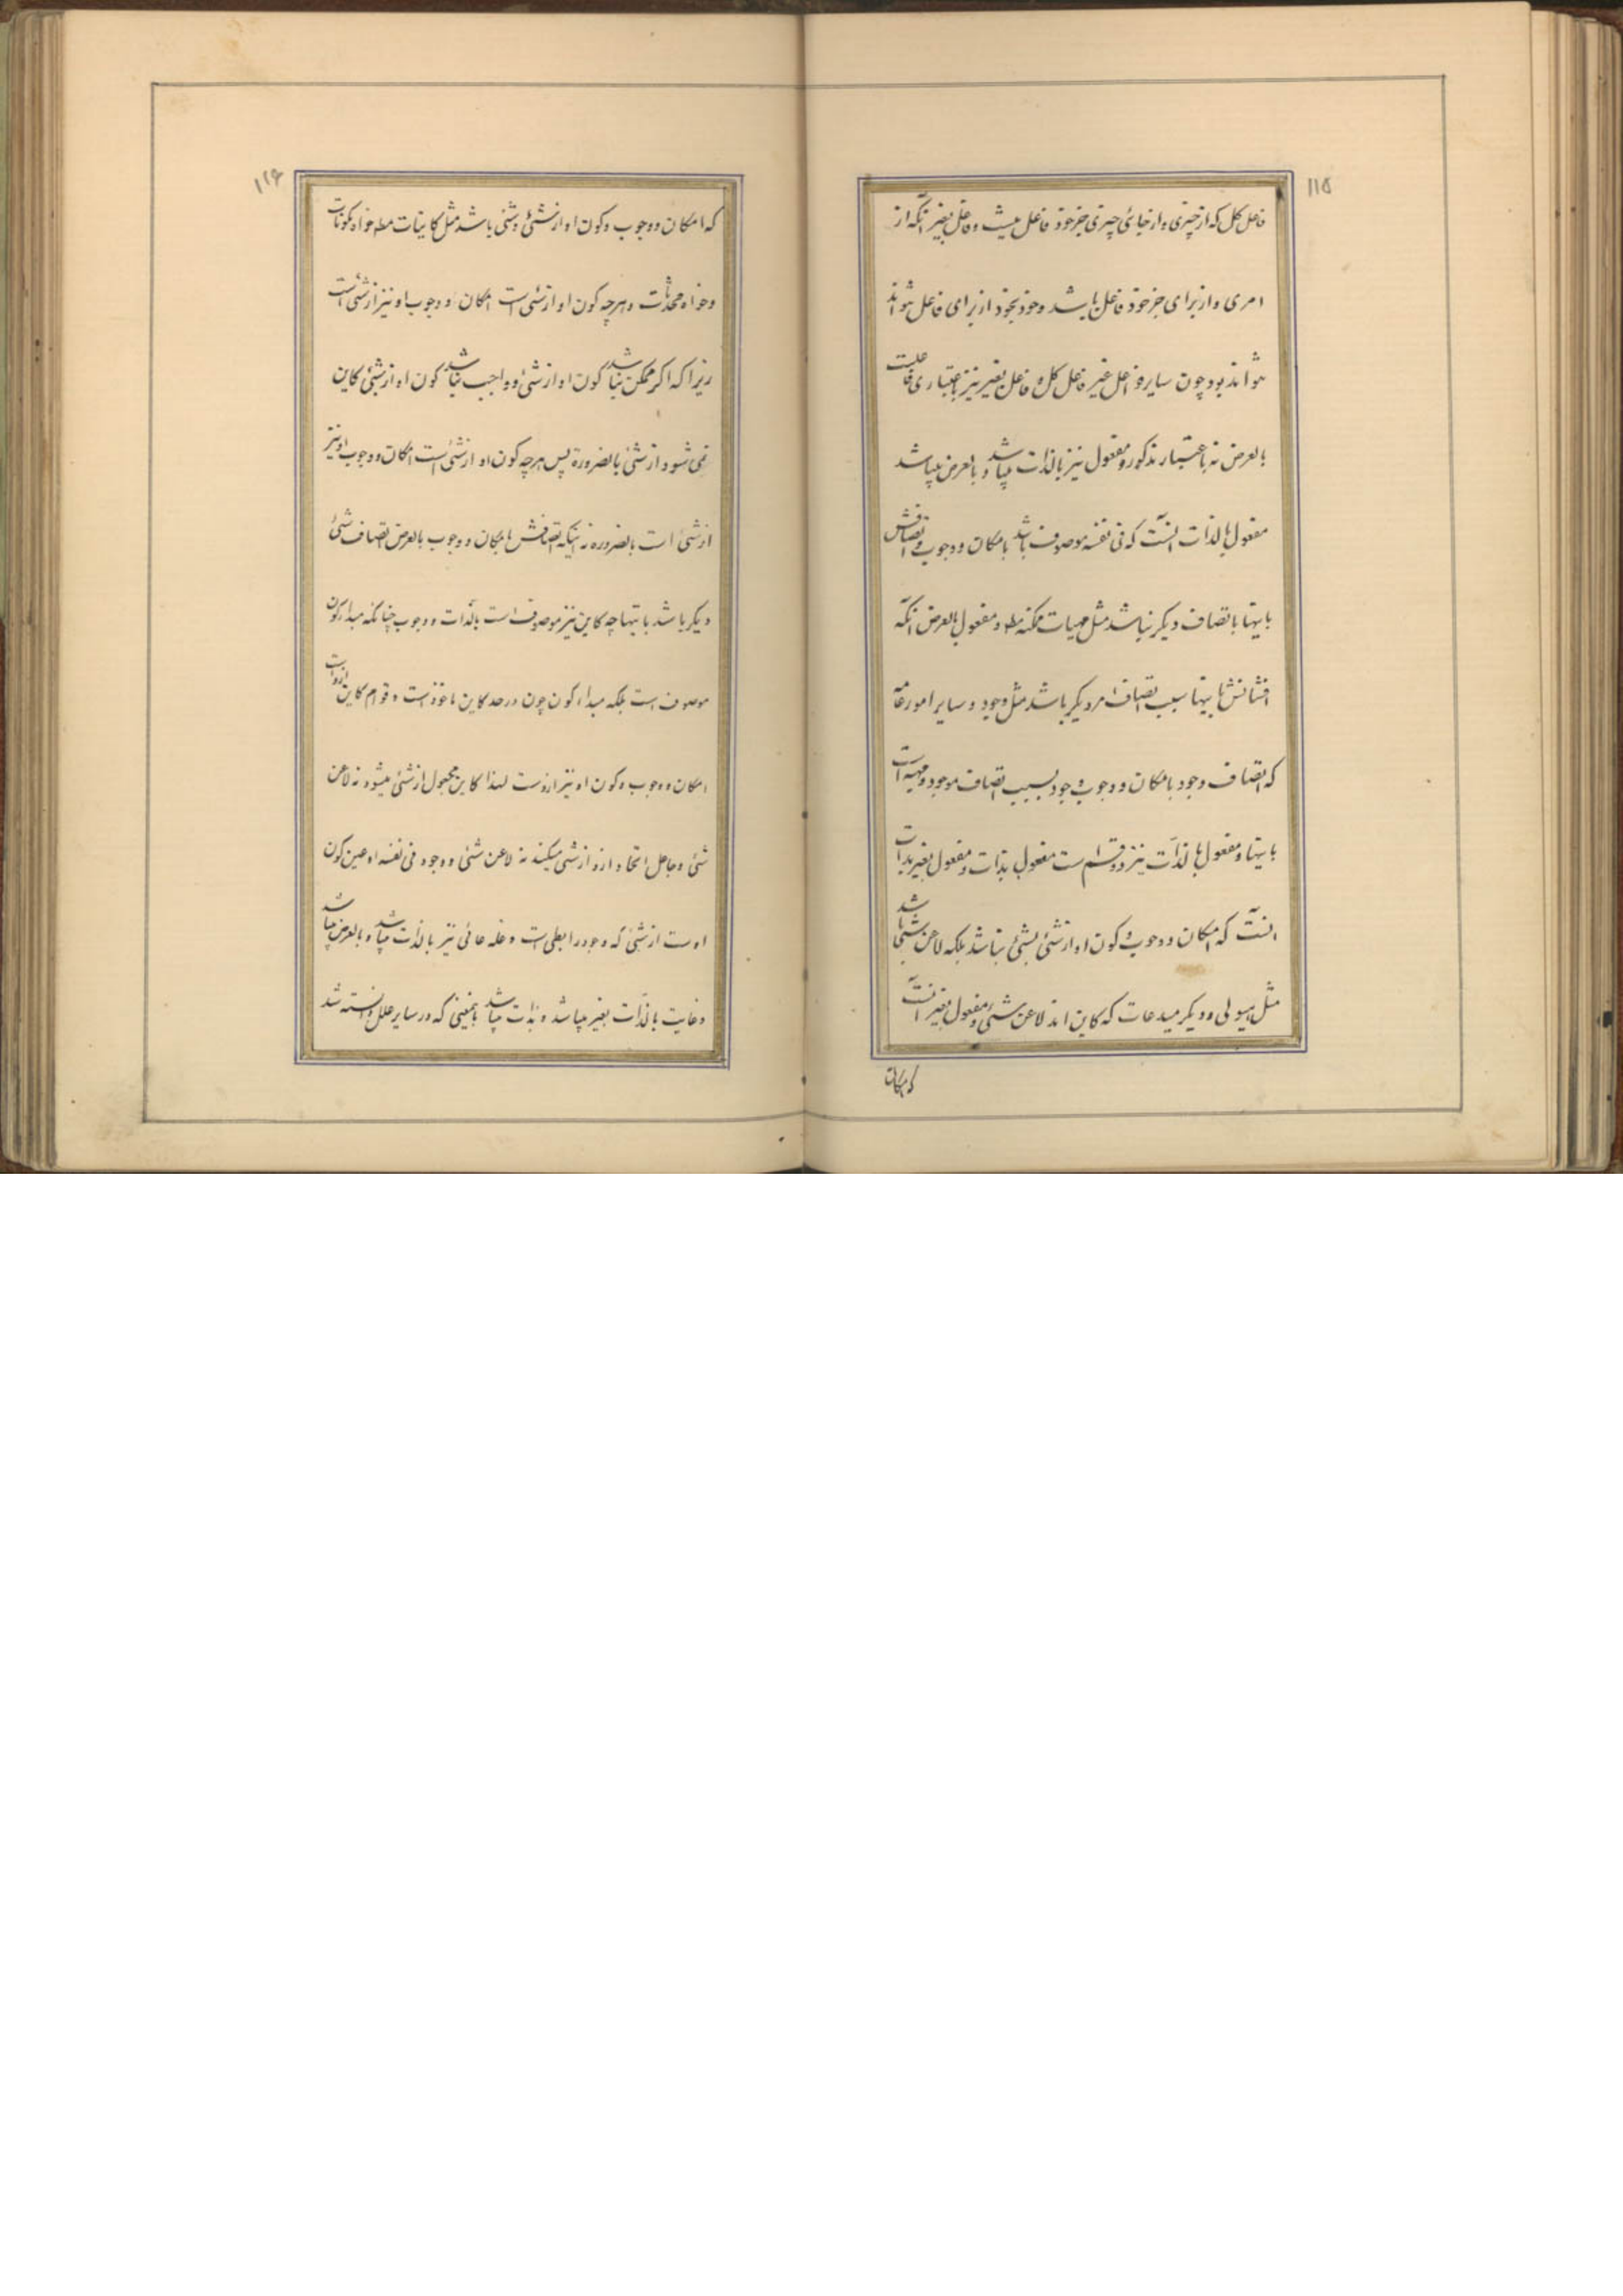 ۱۱۵
فاعل کل که از چیزی و از جای چیزی جز خود فاعل نیست و فاعل بغیر آنکه از
امری و از برای جز خود فاعل باشد و خود بخود از برای فاعل نتواند
تواند بود چون سایر فواعل غیر فاعل کل و فاعل بغیر نیز باعتباری فاعلست
بالعرض نه باعتبار مذکور و مفعول نیز بالذات میباشد و بالعرض میباشد
مفعول بالذات آنست که فی نفسه موصوف باشد بامکان و وجوب و اتصافش
باینها باتصاف دیگر نباشد مثل مهیات ممکنه مط و مفعول بالعرض آنکه
اتصافش باینها بسبب اتصاف امر دیگر باشد مثل وجود و سایر امور عامه
که اتصاف وجود بامکان و وجوب وجود بسبب اتصاف موجود و مهیه است
باینها و مفعول بالذات نیز دو قسم است مفعول بذات و مفعول بغیر بذات
آنست که امکان و وجوب و کون او از شئ بشئ نباشد بلکه لاعن شئ باشد
مثل هیولی و دیگر مبدعات که کاین اند لاعن شئ و مفعول بغیر آنست
که امکان
۱۱۶
که امکان و وجوب و کون او از شئ و شئ باشد مثل کاینات مط خواه مکونات
و خواه محدثات و هرچه کون او از شئ است امکان و وجوب او نیز از شئ است
زیرا که اگر ممکن نباشد کون او از شئ و واجب نباشد کون او از شئ کاین
نمی شود از شئ بالضروره پس هرچه کون او از شئ است امکان و وجوب او نیز
از شئ است بالضروره نه اینکه اتصافش بامکان و وجوب بالعرض اتصاف شئ
دیگر باشد باینها چه کاین نیز موصوف است بالذات و وجوب چنانکه مبداء کون
موصوف است بلکه مبداء کون چون در حد کاین ماخوذست و قوام کاین ازوست
امکان و وجوب و کون او نیز ازوست لهذا کاین مجعول از شئ میشود نه لاعن
شئ و جاعل اتخاذ او از شئ میکند نه لاعن شئ و وجود فی نفسه او عین کون
اوست از شئ که وجود رابطی است و علة غائی نیز بالذات میباشد و بالعرض میباشد
و غایت بالذات بغیر میباشد و بذات میباشد بمعنی که در سایر علل دانسته شد